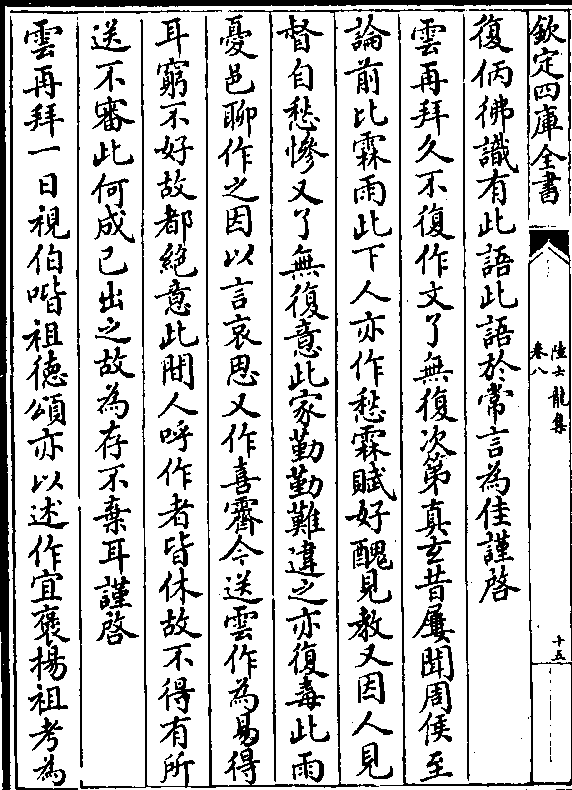 欽定四庫全書
陸士龍集
卷八
十五
復倆彿識有此語此語於常言為佳謹啓
雲再拜久不復作文了無復次第真玄昔屢聞周侯至
論前比霖雨此下人亦作愁霖賦好醜見教又因人見
督自愁慘又了無復意此家勤勤難違之亦復毒此雨
憂邑聊作之因以言哀思又作喜霽今送雲作為易得
耳窮不好故都絕意此間人呼作者皆休故不得有所
送不審此何成已出之故為存不棄耳謹啓
雲再拜一日視伯喈祖德頌亦以述作宜褒揚祖考為